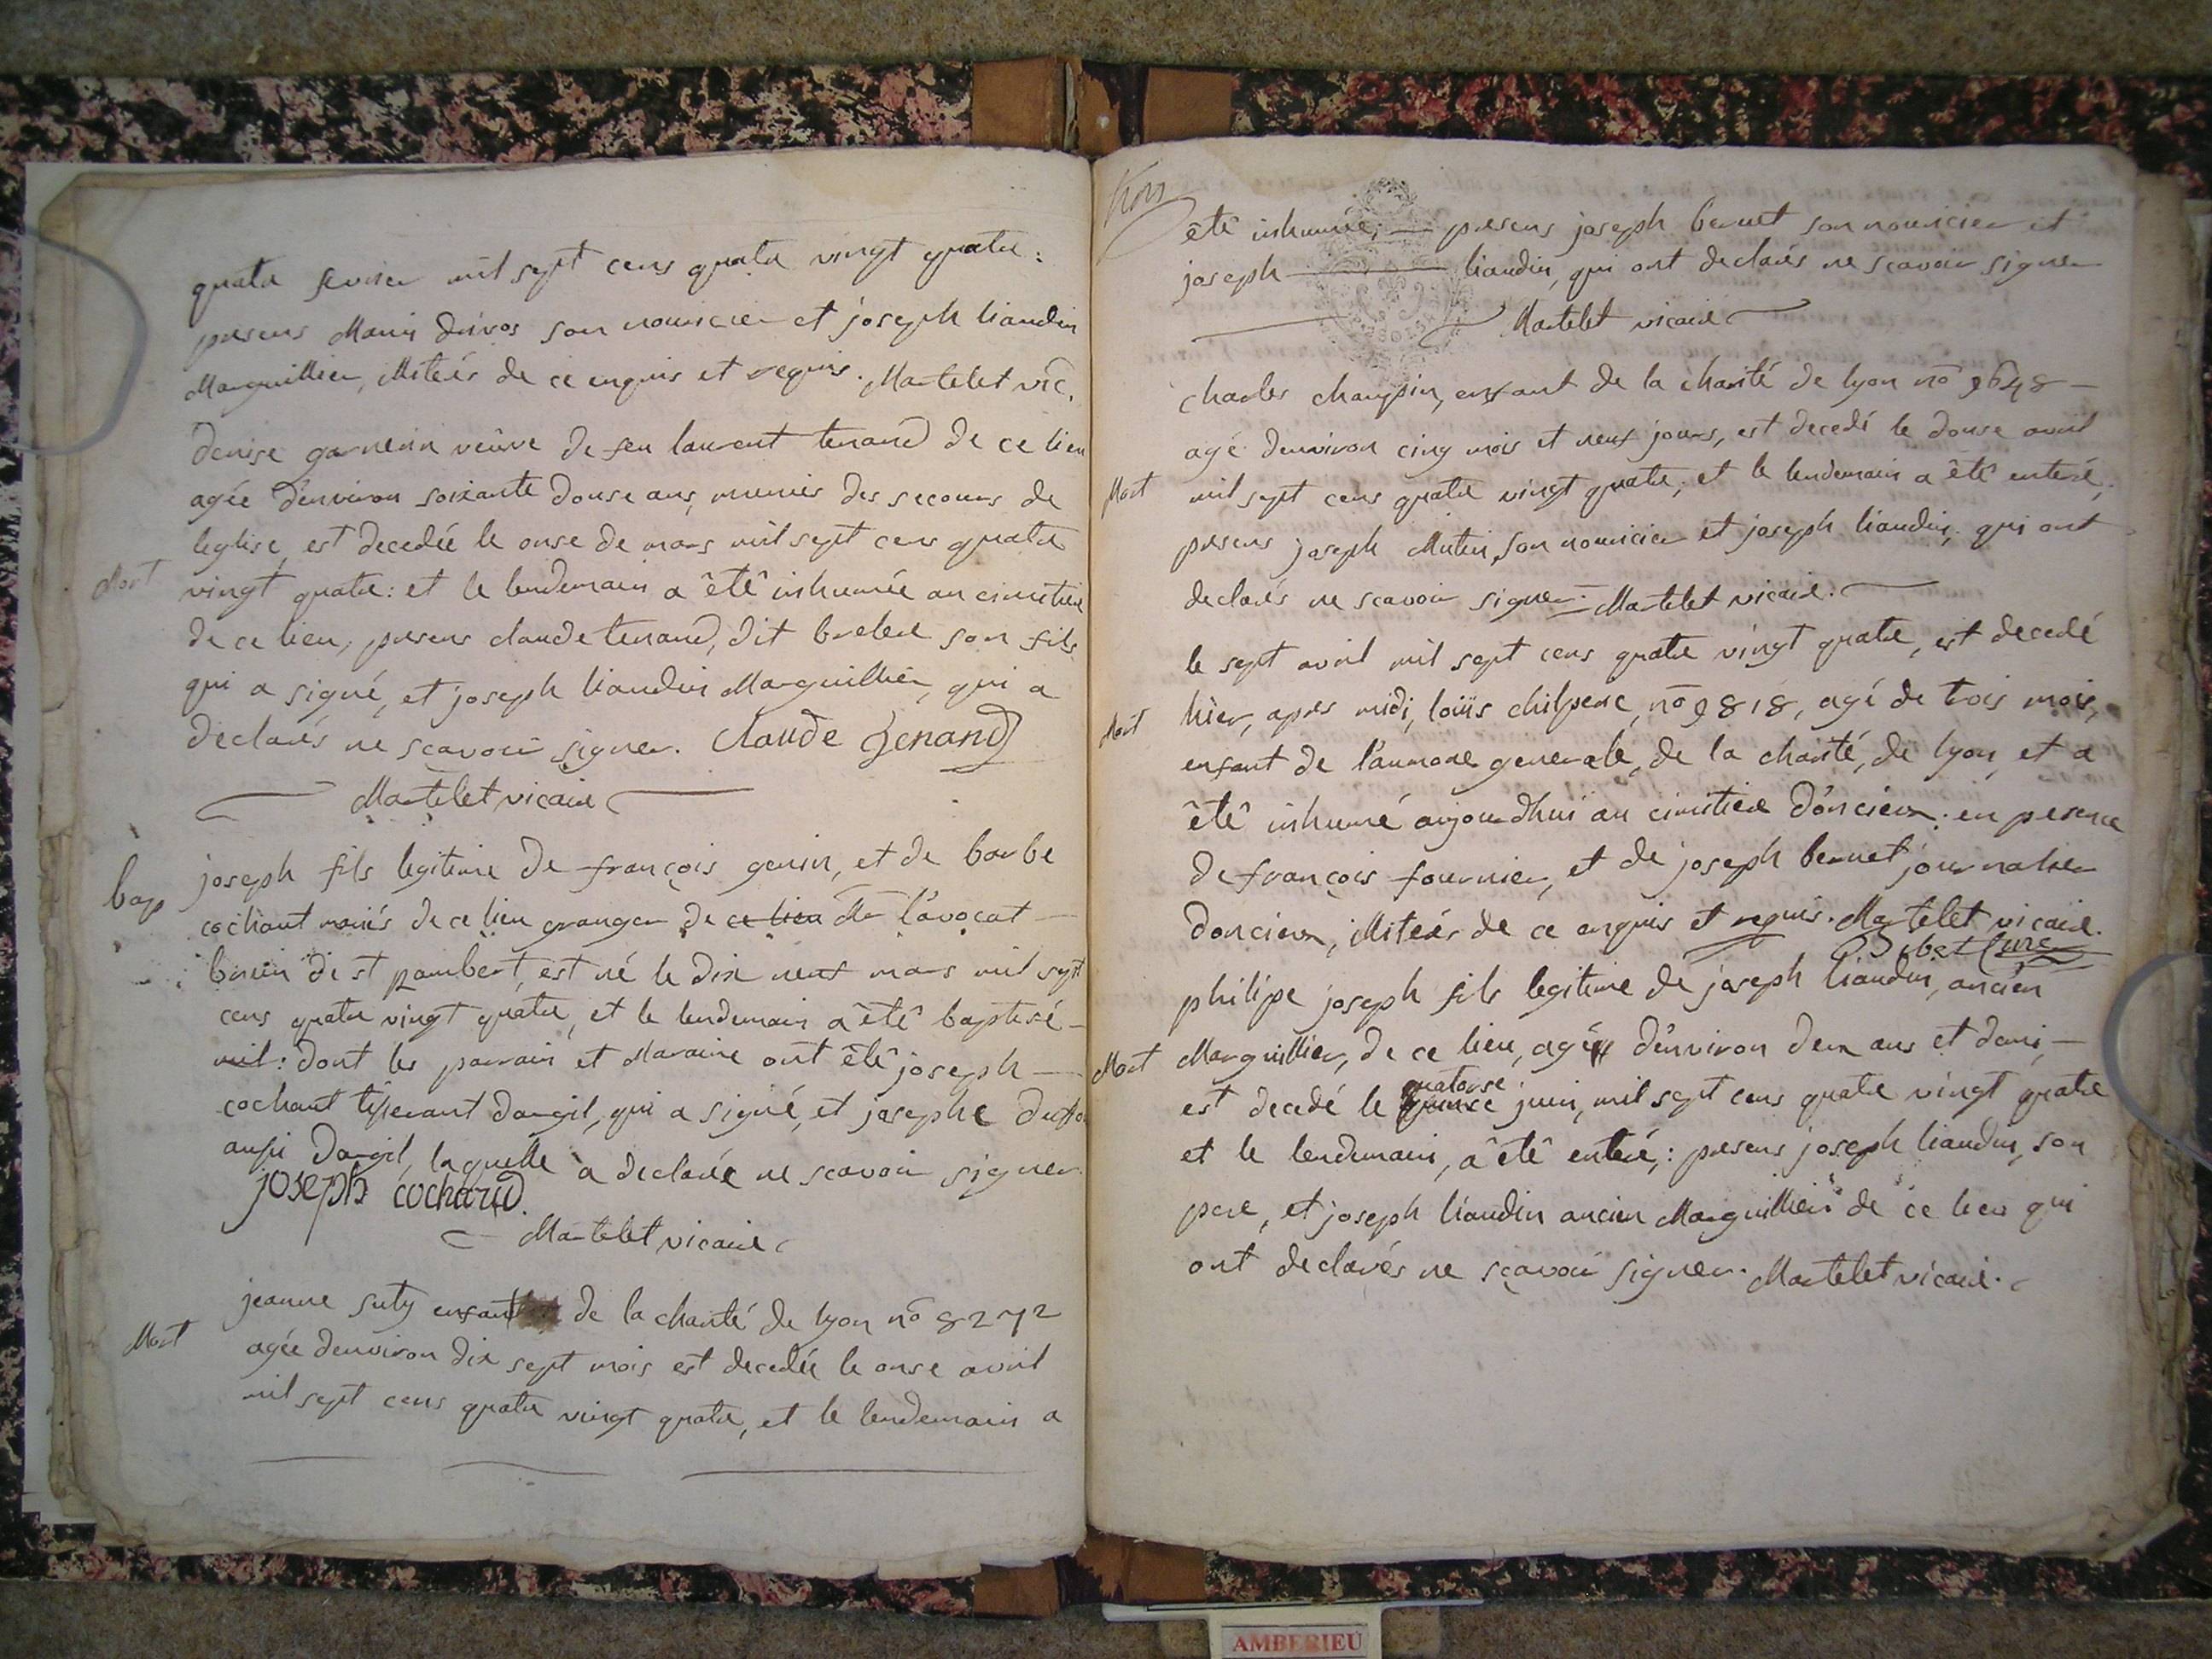 quatre fevrier mil sept cens quatre vingt quatre:
presens Marin drivos son nouricier et joseph liaudin
Marguillier, illiterés de ce enquis et requis. Martelet vic.
Mort
denise garnerin veüve de feu laurent tenand de ce lieu
agée d'environ soixante douse ans, munies des secours de
leglise est decedée le onse de mars mil sept cens quatre
vingt quatre: et le lendemain a êtê inhumée au cimitiere
de ce lieu, presens claude tenand, dit son fils
qui a signé, et joseph liaudin Marguillier, qui a
declarés ne scavoir signer. Claude Tenand
Martelet vicaire
bap
joseph fils legitime de françois genin, et de barbe
cochant mariés de ce lieu granger de ce lieu Mr l'avocat
de st rambert, est né le dix neuf mars mil sept
cens quatre vingt quatre, et le lendemain a êtê baptisé
mil: dont les parrain et Maraine ont êtê joseph
cochant tiserant dargil, qui a signé, et josephe
aussi dargil, laquelle a declarée ne scavoir signer
joseph cochand.
Martelet vicaire
Mort
jeanne suty enfant de la charité de lyon no 8272
agée denviron dix sept mois est decedée le onse avril
mil sept cens quatre vingt quatre, et le lendemain a
trois
êtê inhumée, presens joseph bernet son nouricier et
joseph liaudin, qui ont declarés ne scavoir signer
Martelet vicaire
Mort
charles champin, enfant de la charité de lyon no 9648
agé denviron cinq mois et neuf jours, est decedé le douse avril
mil sept cens quatre vingt quatre, et le lendemain a êtê enteré,
presens joseph Mutin, son nouricier et joseph liaudin, qui ont
declarés ne scavoir signer. Martelet vicaire.
Mort
le sept avril mil sept cens quatre vingt quatre, est decedé
hier, apres midi, loüis chilperic, no 9818, agé de trois mois,
enfant de l'aumone generale, de la charité, de lyon, et a
êtê inhumé aujourdhui au cimitiere d'oncieux: en presence
de françois fournier, et de joseph bernet journalier
doncieux, illiterés de ce enquis et requis. Martelet vicaire.
Sibet Curé
Mort
philipe joseph fils legitime de joseph liaudin, ancien
Marguillier, de ce lieu, agé d'environ deux ans et demi,
quatorse
est decedé le quinse juin, mil sept cens quatre vingt quatre
et le lendemain, a êtê enteré,: presens joseph liaudin, son
pere, et joseph liaudin ancien Marguillier de ce lieu qui
ont declarés ne sçavoir signer. Martelet vicaire.
AMBERIEU